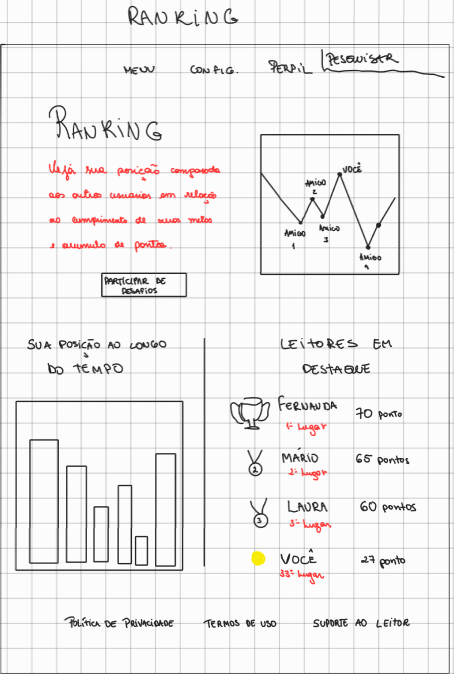 RANKING
MENU CONFIG. PERFIL PESQUISAR
RANKING
Veja sua posição comparada
aos outros usuários em relação
ao cumprimento de suas metas
e acumulo de pontos.
PARTICIPAR DE
DESAFIOS
VOCÊ
AMIGO
2
AMIGO
1
AMIGO
3
AMIGO
4
SUA POSIÇÃO AO LONGO
DO TEMPO
LEITORES EM
DESTAQUE
FERNANDA 70 ponto
1º Lugar
2 MÁRIO 65 pontos
2º Lugar
3 LAURA 60 pontos
3º Lugar
VOCÊ 27 ponto
33º Lugar
POLÍTICA DE PRIVACIDADE TERMOS DE USO SUPORTE AO LEITOR